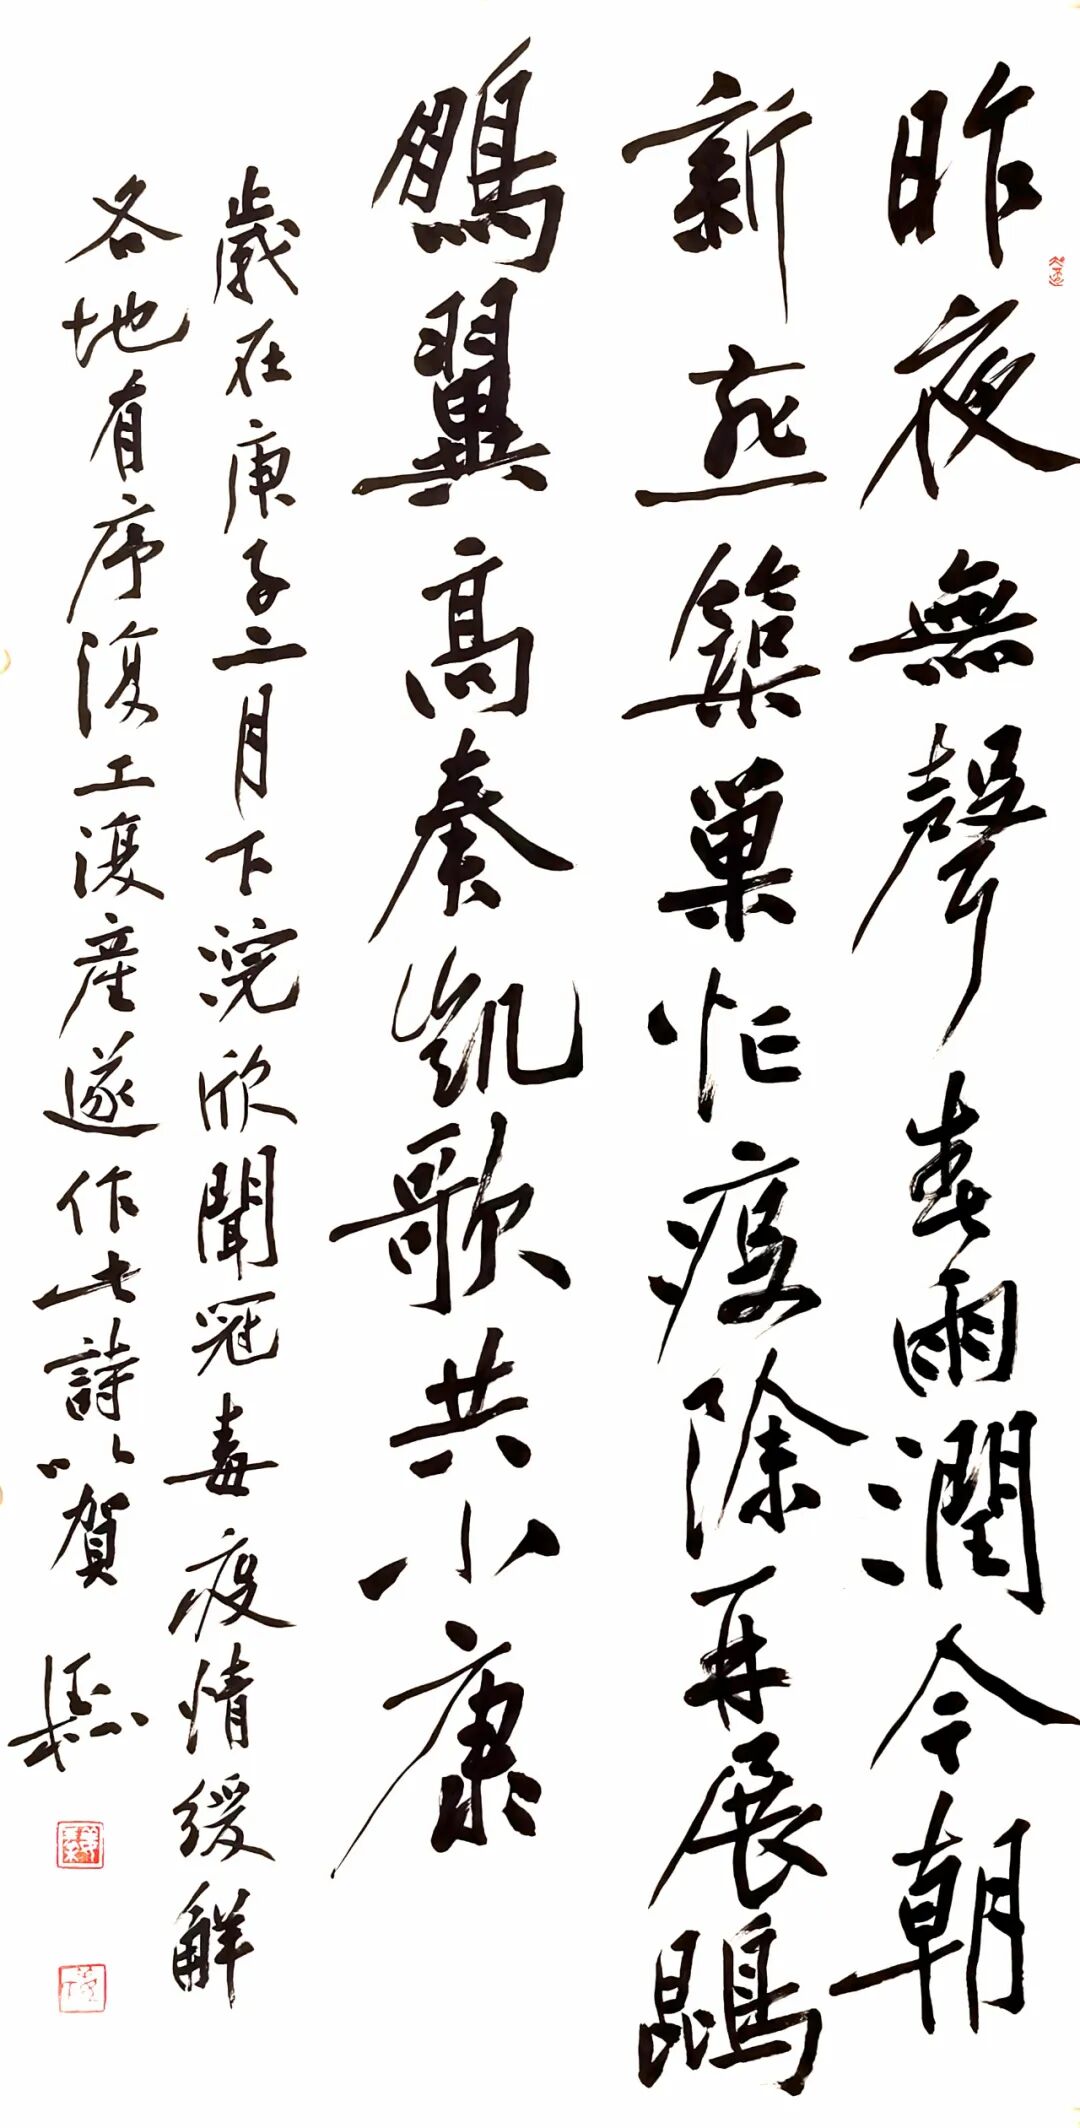 昨夜無聲春雨潤今朝
新燕築巢忙疫除再展鵾
鵬翼高奏凱歌共小康
歲在庚子二月下浣欣聞冠毒疫情緩解
各地有序復工復産遂作此詩以賀